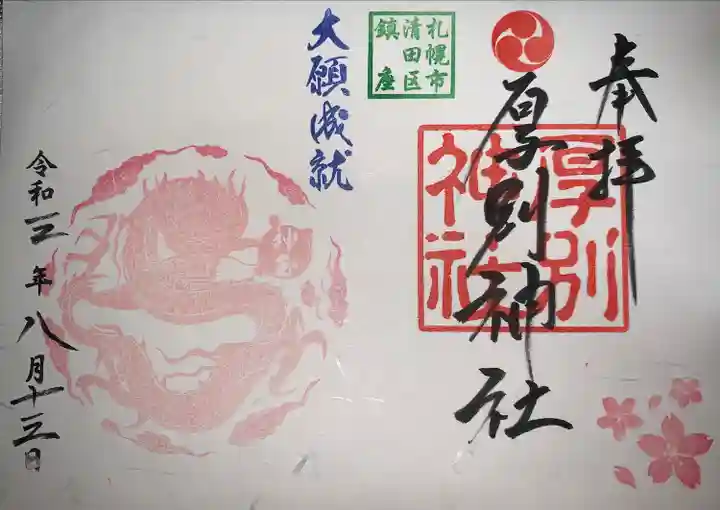 奉拝
厚別神社
厚別
神社
札幌市
清田区
鎮座
大願成就
令和三年八月十三日